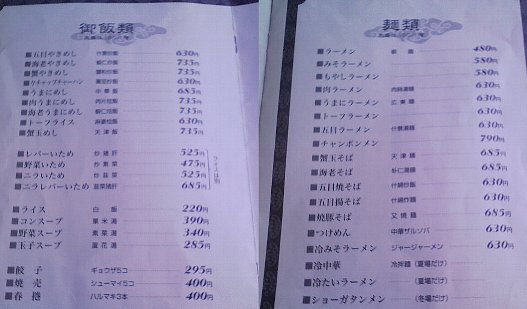 御飯類
五目やきめし 什景炒飯 630円
海老やきめし 蝦仁炒飯 735円
蟹やきめし 蟹肉炒飯 735円
ケチャップチャーハン 630円
うまにめし 中華飯 685円
肉うまにめし 肉片烩飯 735円
海老うまにめし 蝦仁烩飯 735円
トーフライス 630円
蟹玉めし 天津飯 735円
レバーいため 炒猪肝 525円
野菜いため 炒素菜 475円
ニラいため 炒韮菜 525円
ニラレバーいため 韮菜猪肝 685円
ライスは別
ライス 白飯 220円
コンスープ 粟米湯 390円
野菜スープ 素菜湯 340円
玉子スープ 蛋花湯 285円
餃子 ギョウザ5コ 295円
焼売 シューマイ5コ 400円
春捲 ハルマキ3本 400円
麺類
ラーメン 480円
みそラーメン 580円
もやしラーメン 580円
肉ラーメン 肉絲湯麺 630円
うまにラーメン 広東麺 630円
トーフラーメン 630円
五目ラーメン 什景湯麺 630円
チャンポンメン 790円
蟹玉そば 天津麺 685円
海老そば 蝦仁湯麺 685円
五目焼そば 什錦炒麺 630円
五目揚そば 什錦炸麺 630円
焼豚そば 叉焼麺 685円
つけめん 中華ザルソバ 630円
冷みそラーメン ジャージャーメン 630円
冷中華 冷拌麺(夏場だけ)
冷たいラーメン (夏場だけ)
ショーガタンメン (冬場だけ)